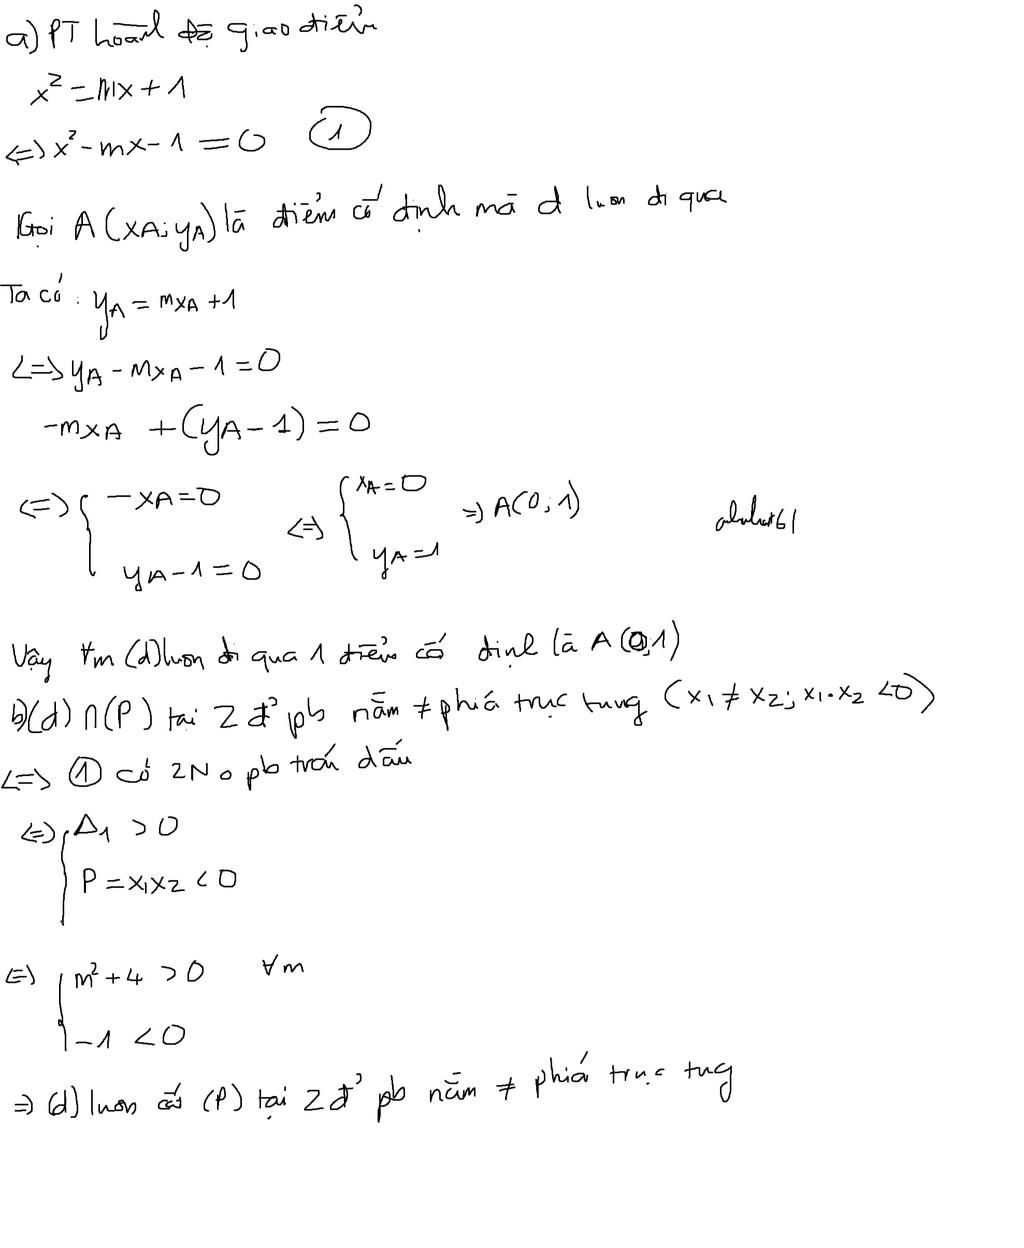 a) PT hoành độ giao điểm
x² = mx + 1
<=> x² - mx - 1 = 0 ①
Gọi A(xA; yA) là điểm cố định mà d luôn đi qua
Ta có: yA = mxA + 1
<=> yA - mxA - 1 = 0
-mxA + (yA - 1) = 0
<=> { -xA = 0 <=> { xA = 0 => A(0; 1)
yA - 1 = 0 yA = 1
Vậy ∀m (d) luôn đi qua 1 điểm cố định là A(0,1)
b) (d) ∩ (P) tại 2 đ' pb nằm ≠ phía trục tung (x1 ≠ x2; x1.x2 < 0)
<=> ① có 2 No pb trái dấu
<=> { Δ1 > 0
P = x1x2 < 0
<=> { m² + 4 > 0 ∀m
-1 < 0
=> (d) luôn cắt (P) tại 2 đ' pb nằm ≠ phía trục tug